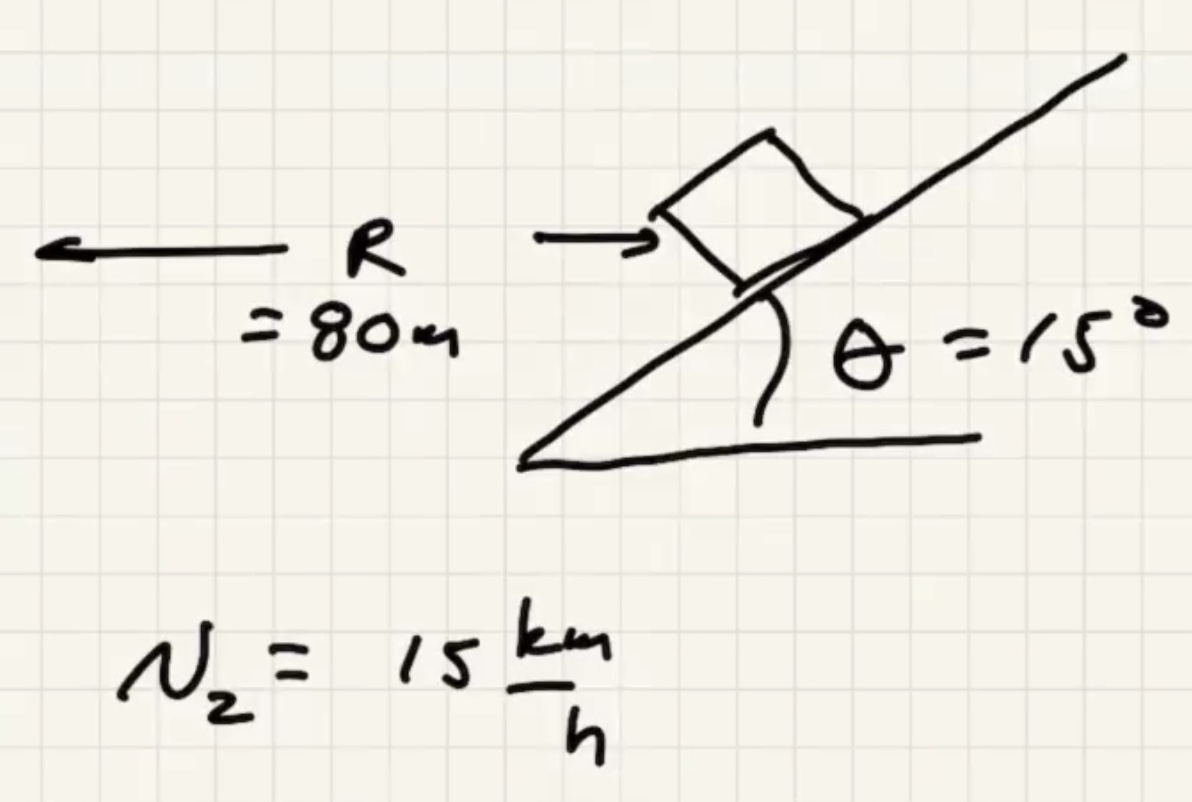 R
= 80m
θ = 15°
v₂ = 15 km/h